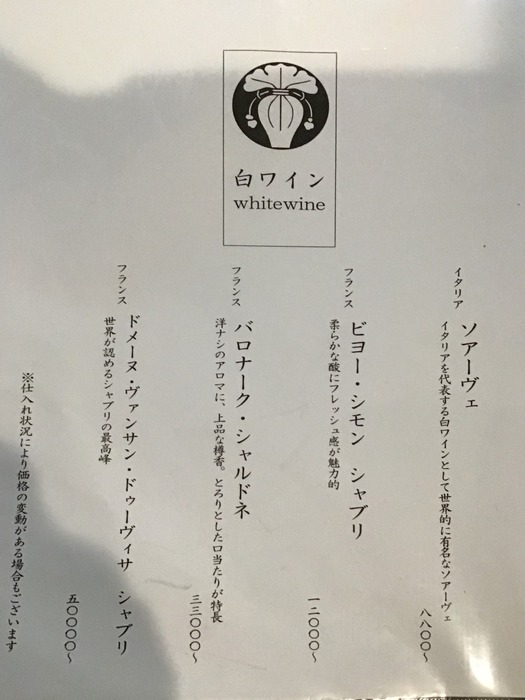 白ワイン
whitewine
イタリア
ソアーヴェ
イタリアを代表する白ワインとして世界的に有名なソアーヴェ
八八〇〇~
フランス
ビヨー・シモン シャブリ
柔らかな酸にフレッシュ感が魅力的
一二〇〇〇~
フランス
バロナーク・シャルドネ
洋ナシのアロマに、上品な樽香。とろりとした口当たりが特長
三三〇〇〇~
フランス
ドメーヌ・ヴァンサン・ドゥーヴィサ シャブリ
世界が認めるシャブリの最高峰
五〇〇〇〇~
※仕入れ状況により価格の変動がある場合もございます